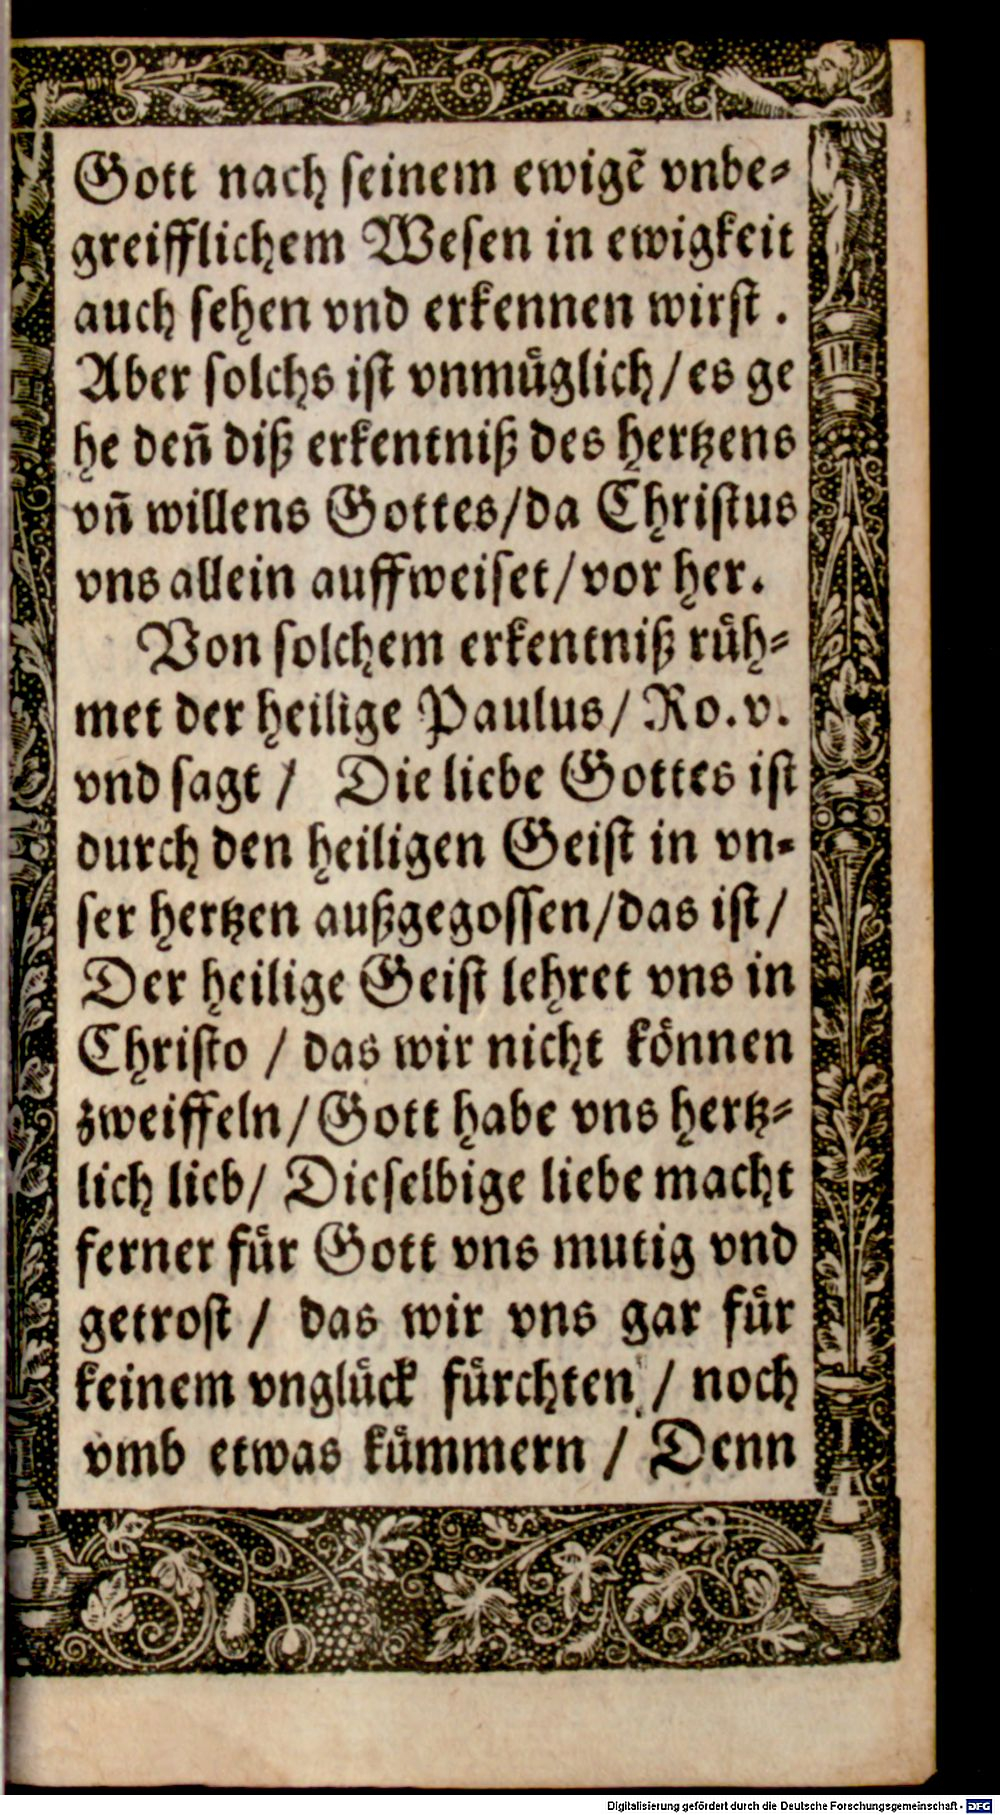 Gott nach seinem ewigẽ vnbe-
greifflichem Wesen in ewigkeit
auch sehen vnd erkennen wirst .
Aber solchs ist vnmuͤglich/es ge
he deñ diß erkentniß des hertzens
vñ willens Gottes/da Christus
vns allein auffweiset/vor her.
Von solchem erkentniß ruͤh-
met der heilige Paulus/ Ro.v.
vnd sagt / Die liebe Gottes ist
durch den heiligen Geist in vn-
ser hertzen außgegossen/das ist/
Der heilige Geist lehret vns in
Christo / das wir nicht koͤnnen
zweiffeln/Gott habe vns hertz-
lich lieb/ Dieselbige liebe macht
ferner fuͤr Gott vns mutig vnd
getrost / das wir vns gar fuͤr
keinem vngluͤck fuͤrchten / noch
vmb etwas kuͤmmern / Denn
Digitalisierung gefördert durch die Deutsche Forschungsgemeinschaft - DFG